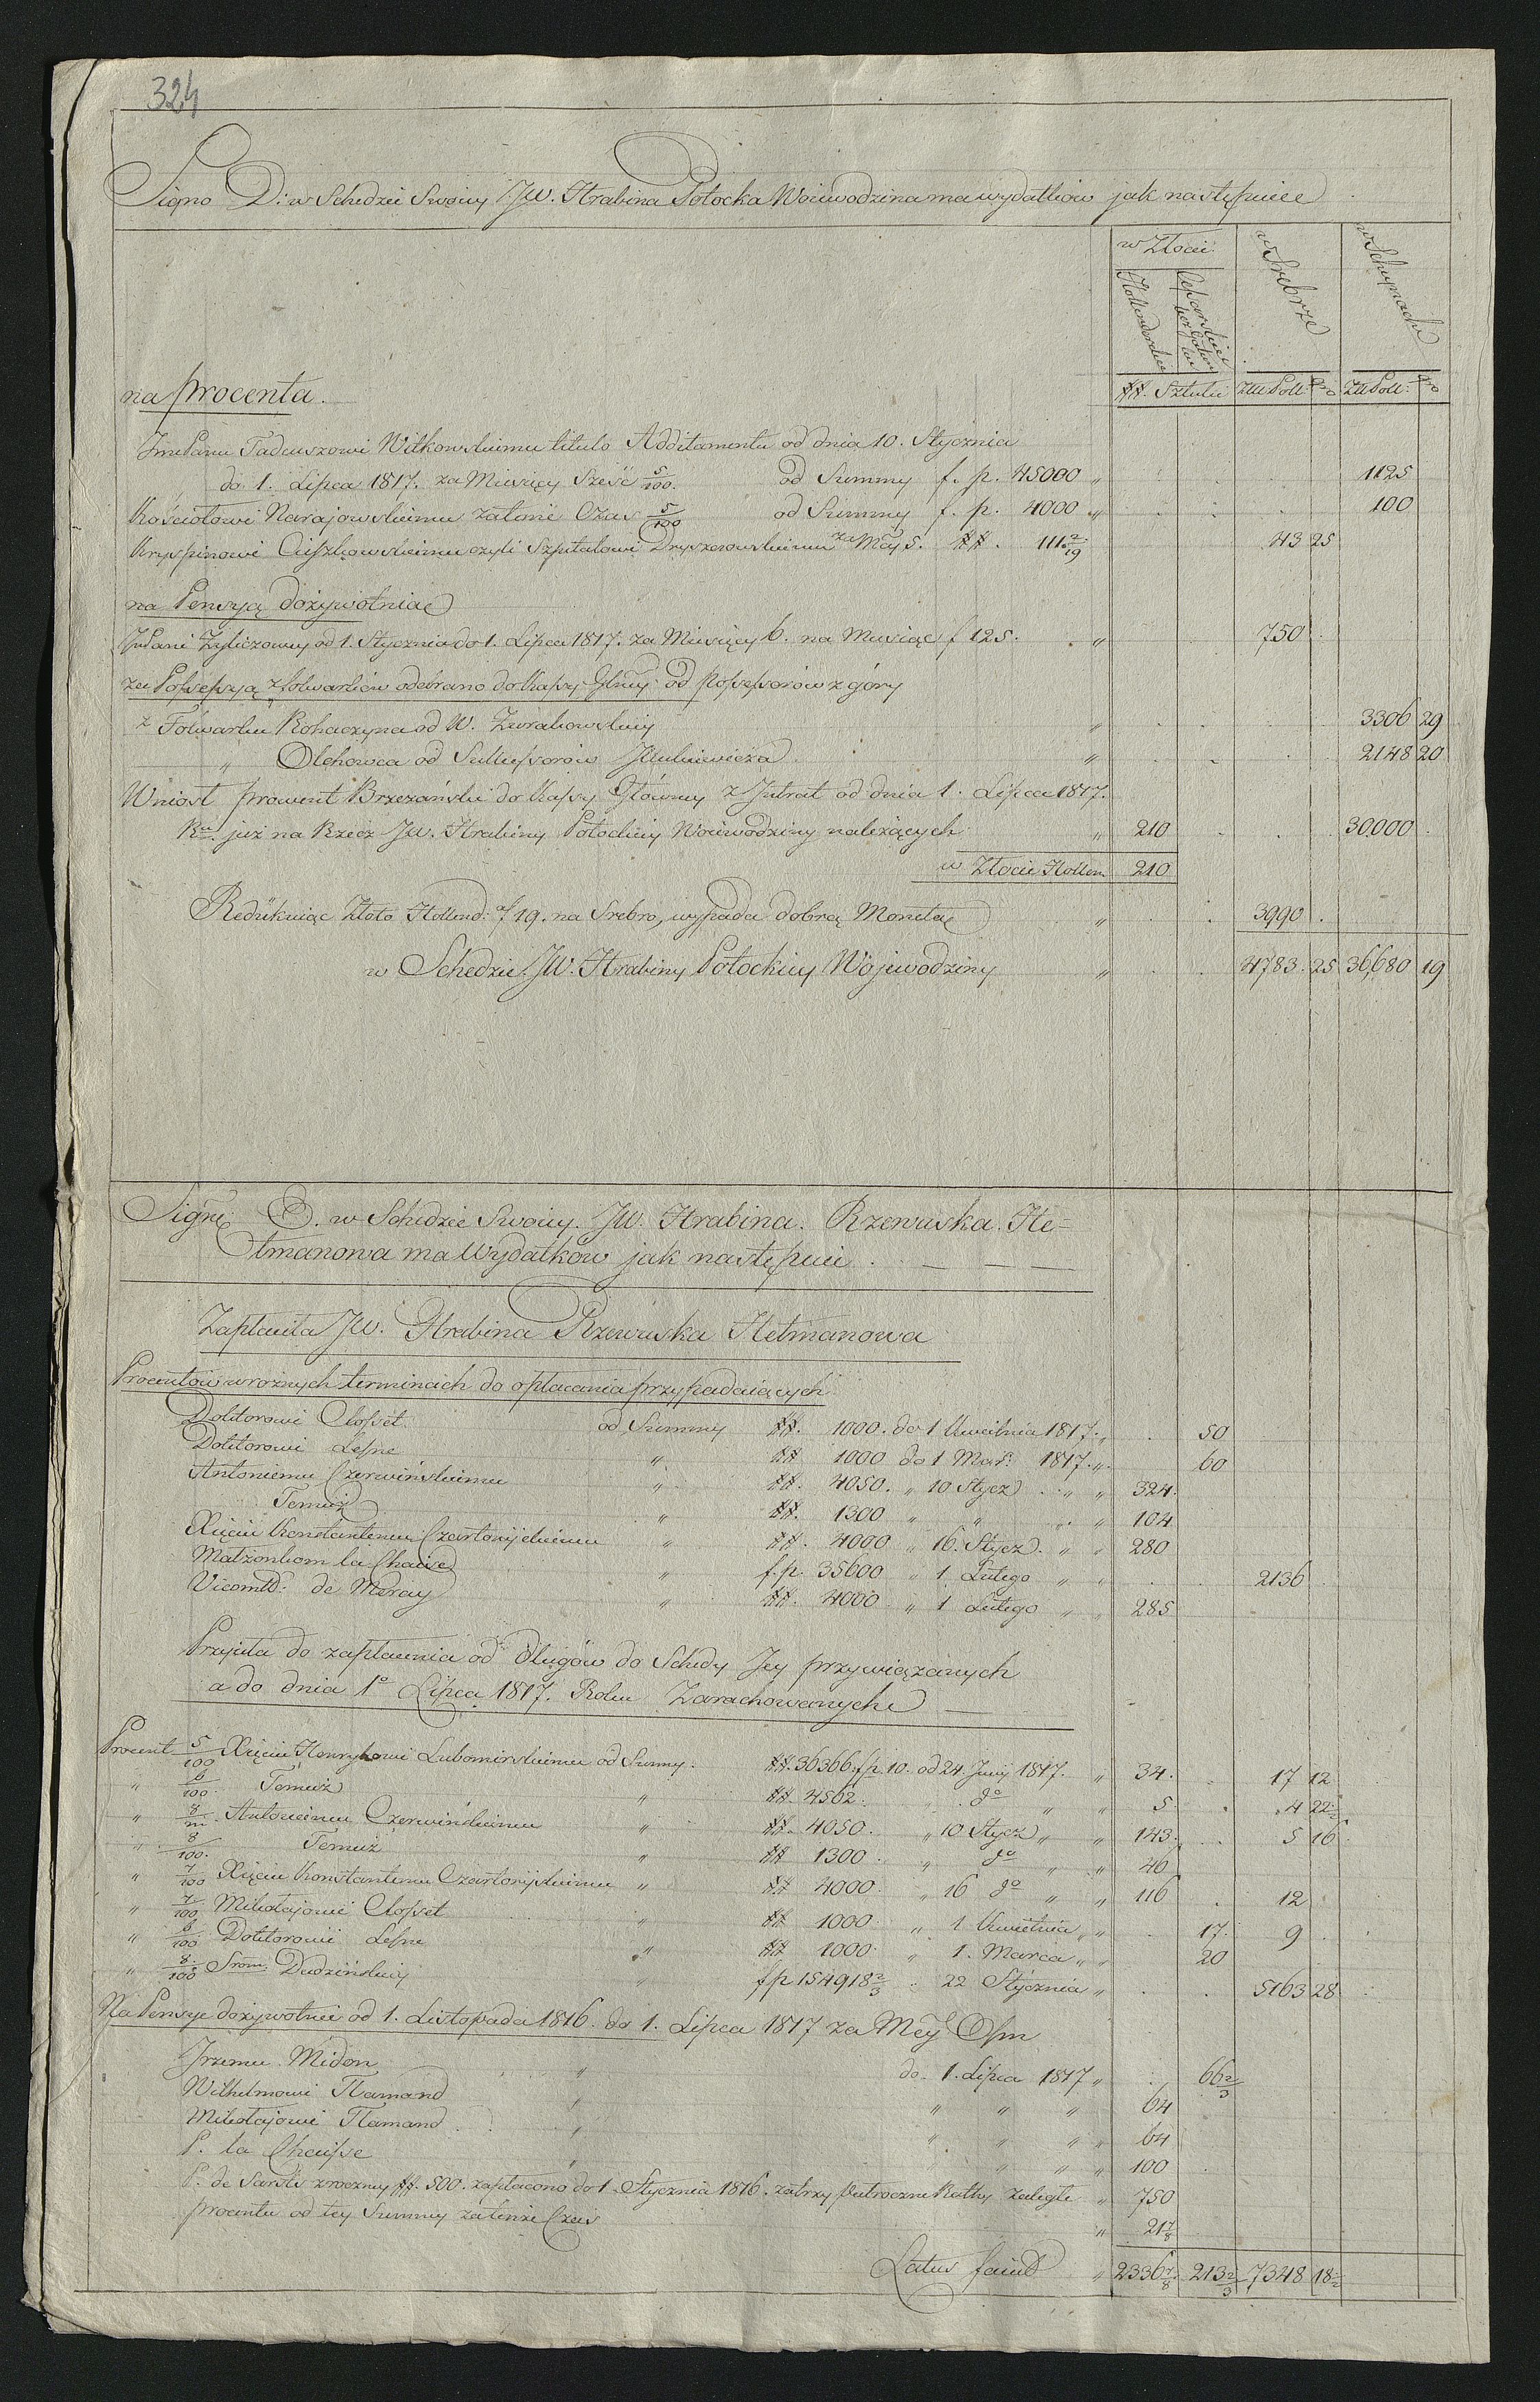 324
Signo D: w Schedzie Swoiey JW. Hrabina Potocka Woiewodzina ma wydatków jak następuiee
w Złocie
w Srebrze
w Schaynach
Hollenderskie
Cesarskie
##. Sztuki Zll Poll. gro Zll Poll: gro
na procenta.
Jmć Panu Tadeuszowi Witkowskiemu titulo Additamentu od dnia 10. Stycznia
do 1. Lipca 1817. za Miesięcy Sześć 5/100. od Summy f. p. 45000 " 1125
Kościołowi Narajowskiemu zatenże Czas 5/100 od Summy f. p. 4000 " 100
Kryspinowi Ciszkowskiemu czyli Szpitalowi za Mcy 5. ##. 111 2/19 43 25
na Pensyą dożywotniae
JPani Zyliczowey od 1. Stycznia do 1. Lipca 1817. za Miesięcy 6. na Miesiąc f 125. " 750
za Possessyą z folwarków odebrano do Kassy Głney od Possessorów z góry
z Folwarku Rohaczyna od W. Zurakowskiey " 3306 29
" Olchowca od Sukcessorów " 2148 20
Wniosł prowent Brzezański do Kassy Głównej z Jntrat od dnia 1. Lipca 1817.
Ru. już na Rzecz JW. Hrabiny Potockiey Woiewodziny należących " 210 30.000
w Złocie Hollen. 210
Redukuiąc Złoto Hollend: a/19. na Srebro, wypada dobrą Monetą " 3990
w Schedzie JW. Hrabiny Potockiey Wojewodziny " 4783. 25 36,680 19
Signe E. w Schedzie Swoiey. JW. Hrabina. Rzewuska. He=
tmanowa ma Wydatkow jak następuie . — — —
Zapłaciła JW. Hrabina Rzewuska Hetmanowa
Procentów w rożnych terminach do opłacania przypadaiących
Doktorowi Closset od Summy ##. 1000. do 1 Kwietnia 1817. " 50
Doktorowi Lesne " ## 1000 do 1 Mar: 1817. " 60
Antoniemu Czerwińskiemu " ##. 4050. " 10 Stycz " " 324.
Temuż " ##. 1300 " " " " 104
Xięciu Konstantemu Czartoryskiemu " ##. 4000 " 16. Stycz. " " 280
Małżonkom la Chaise " f.p. 35600 " 1 Lutego " " 2136
Vicomtd: de Moray " ##. 4000 " 1 Lutego " " 285
Przyięła do zapłacenia od Długów do Schedy Jey przywiązanych
a do dnia 1o Lipca 1817. Roku Zarachowanych
Procent 5/100 Xięciu Henrykowi Lubomirskiemu od Summy. ##. 36366. fp 10. od 24. Juny 1817. " 34. 17 12
" 6/100. Temuż " ## 4562. " do " " 5 4 22 1/2
" 8/m. Antoniemu Czerwińskiemu " ##. 4050. " 10 Stycz " " 143. 5 16
" 8/100. Temuż " ## 1300. " do " " 46
" 7/100 Xięciu Konstantemu Czartoryskiemu " ## 4000. " 16 do " " 116 12
" 7/100 Mikołajowi Closset " ## 1000 " 1. Kwietnia " " 17. 9
" 6/100. Doktorowi Lesne " ## 1000. " 1. Marca " " 20
" 8/100 Dudzińskiey " fp 154918 2/3 " 22 Stycznia " 5163 28
Na Pensye dożywotnie od 1. Listopada 1816. do 1. Lipca 1817 za Mcy Osm
Midon " do 1. Lipca 1817 " 66 2/3
Wilhelmowi Flamand " " " " 64
Mikołajowi Flamand " " " " " 64
P. la Chaisse " " " " 100
P. de Saroli zroczney ##. 500. zapłacono do 1. Stycznia 1816. za trzy Pułroczne Ratty zaległe " 750
procentu od tey Summy zatenże Czas " 21 7/8
Latus facit " 2336 7/8. 213 2/3 7348 18 1/2